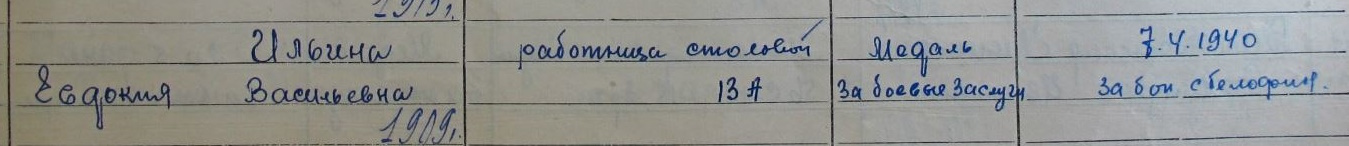 1913г.
Ильина работница столовой Медаль 7.4.1940
Евдокия Васильевна 13 А За боевые Заслуги За бои с белофин.
1909г.